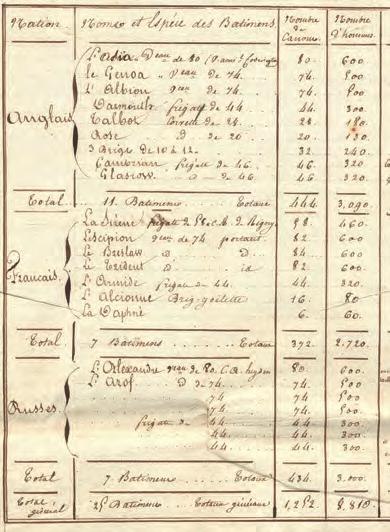 Nation Noms et Espèce des Batimens Nombre de Canons Nombre d'hommes
Anglais
L'Asia Veau de 80 (V. amal Codrington 80. 600
le Genoa " Veau de 74. 74. 500
L'Albion Veau de 74. 74. 500
Darmouth frégate de 44. 44. 300
Talbot Corvette de 28. 28 180.
Rose D de 20 20 130.
3 Brigs de 10 à 12. 32. 240.
Cambrian frégate de 46. 46. 320
Glascow D de 46. 46 320
Total 11. Batimens Totaux 444. 3,090.
Français
La Sirène frégate de 58. C. A. de Rigny 58. 460.
Le Scipion Veau de 74 portant 82. 600
Le Breslaw D D 84. 600
Le Trident D id 82. 600
L'Armide frégate de 44. 44. 320
L'Alcionne Brig-goëlette 16. 80
La Daphné 6. 60
Total 7 Batimens Totaux 372. 2,720.
Russes
L'Alexandre Veau de 80. C. A. heyden 80. 600
L'Azof D de 74. 74. 500
74 74 500
74 74. 500.
frégate de 44 44. 300.
44 44. 300.
44 44. 300.
Total 7 Batimens Totaux 434. 3.000.
Total général 25 Batimens Totaux généraux 1,252. 8,810